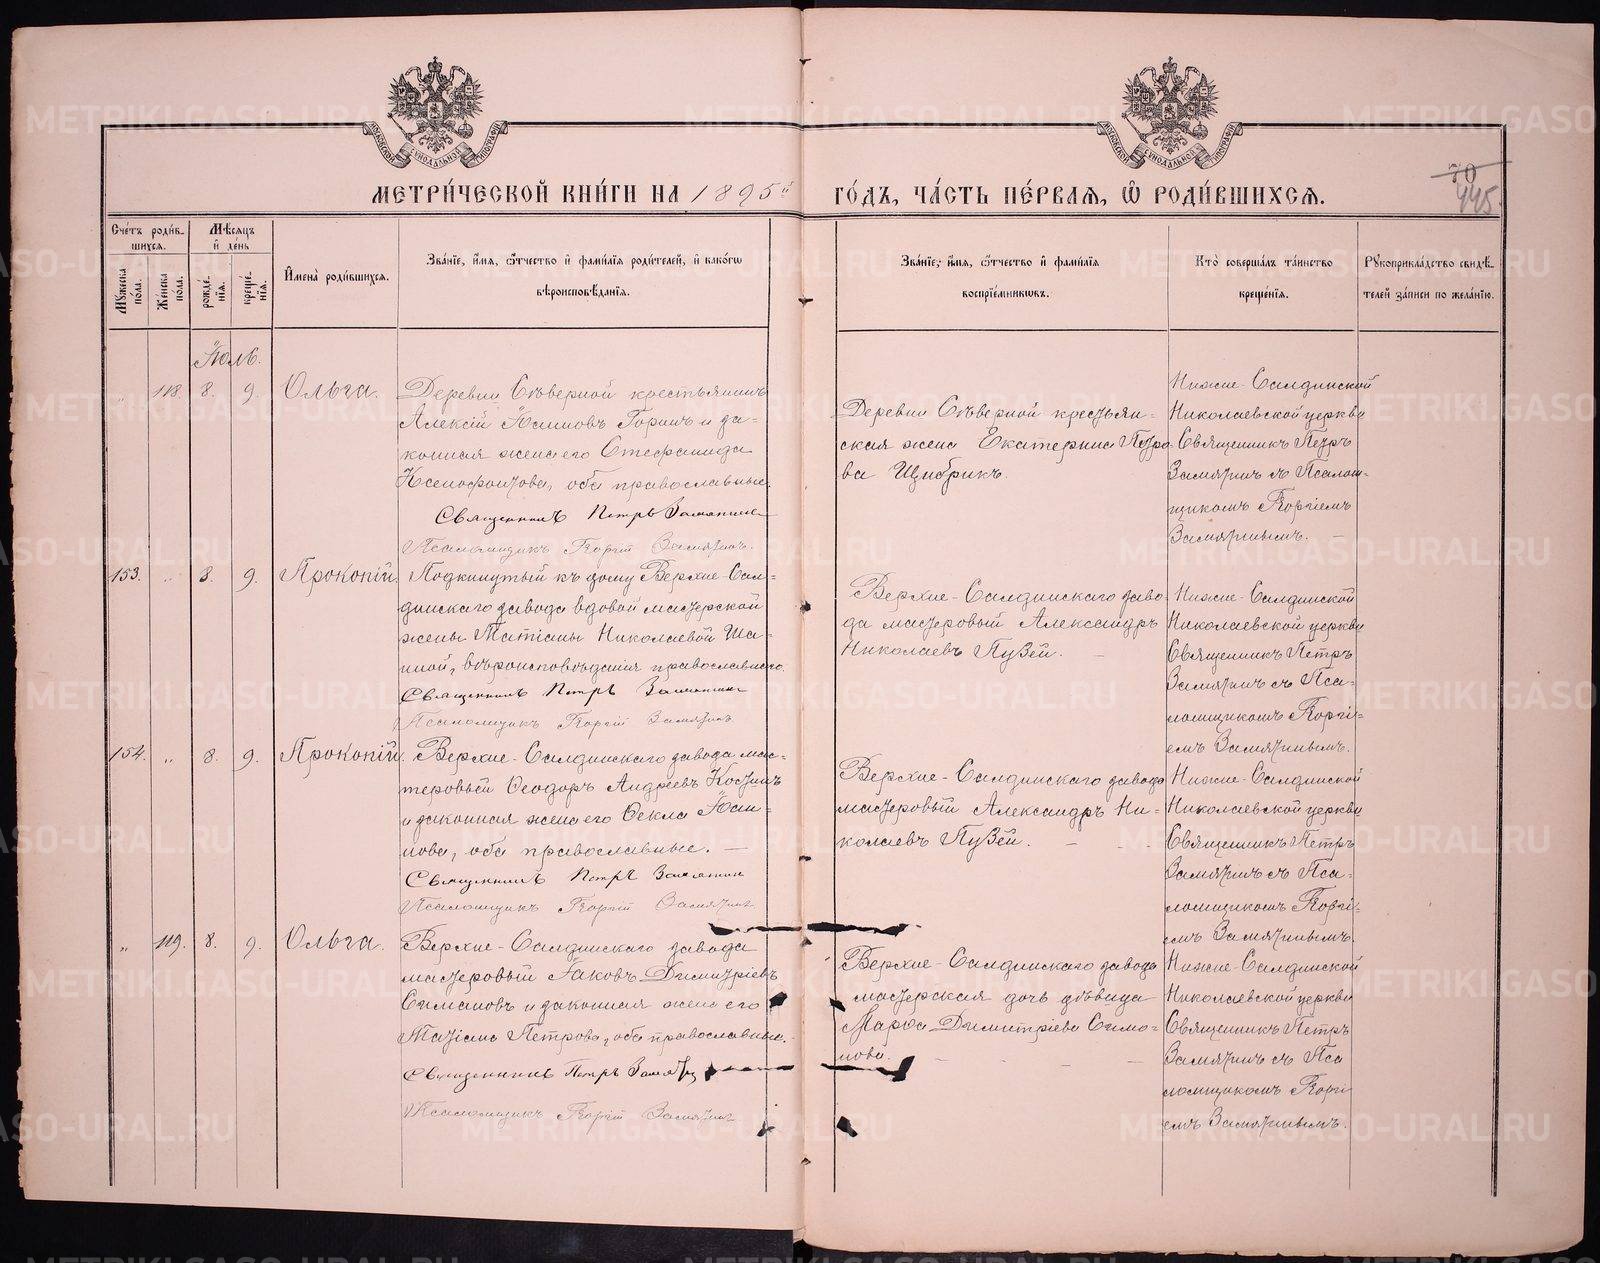 МЕТРИ́ЧЕСКОЙ КНИ́ГИ НА 1895й ГО́ДЪ, ЧА́СТЬ ПЕ́РВАЯ, Ѡ РОДИ́ВШИХСЯ.
70
445.
Сче́тъ роди́в-
шихся.
Мѣсяцъ
и҆ де́нь
Му́жеска
по́ла.
Же́нска
по́ла.
рожде-
нія.
креще́-
нія.
И҆мена̀ роди́вшихся.
Зва́нїе, и҆́мя, ѻ҆́тчество и҆ фами́лїя роди́телей, и҆ како́гѡ
вѣроисповѣ́данїя.
Зва́нїе, и҆́мя, ѻ҆́тчество и҆ фами́лїя
воспрїе́мникѡвъ.
Кто̀ соверша́лъ та́инство
креще́нїя.
Рꙋкоприкла́дство свидѣ́-
телей за́писи по жела́нїю.
Іюль.
„ 118. 8. 9. Ольга.
Деревни Сѣверной крестьянинъ
Алексій Іоанновъ Горинъ и за-
конная жена его Стефанида
Ксенофонтова, оба православные.
Священникъ Петръ Замятинъ
Псаломщикъ Георгій Замятинъ.
Деревни Сѣверной крестьян-
ская жена Екатерина Петро-
ва
Нижне-Салдинской
Николаевской церкви
Священникъ Петръ
Замятинъ съ Псалом-
щикомъ Георгіемъ
Замятинымъ.
153. „ 8. 9. Прокопій.
Подкинутый къ дому Верхне-Сал-
динскаго завода вдовой мастерской
жены Татіаны Николаевой Ша-
ниной, вѣроисповѣданія православнаго.
Священникъ Петръ Замятинъ
Псаломщикъ Георгій Замятинъ
Верхне-Салдинскаго заво-
да мастеровый Александръ
Николаевъ Пузей.
Нижне-Салдинской
Николаевской церкви
Священникъ Петръ
Замятинъ съ Пса-
ломщикомъ Георгі-
емъ Замятинымъ.
154. „ 8. 9. Прокопій.
Верхне-Салдинскаго завода мас-
теровый Ѳеодоръ Андреевъ Костинъ
и законная жена его Ѳекла Іоан-
нова, оба православные.
Священникъ Петръ Замятинъ
Псаломщикъ Георгій Замятинъ
Верхне-Салдинскаго завода
мастеровый Александръ Ни-
колаевъ Пузей.
Нижне-Салдинской
Николаевской церкви
Священникъ Петръ
Замятинъ съ Пса-
ломщикомъ Георгі-
емъ Замятинымъ.
„ 119. 8. 9. Ольга.
Верхне-Салдинскаго завода
мастеровый Іаковъ Димитріевъ
Симановъ и законная жена его
Татіана Петрова, оба православные.
Священникъ Петръ Замятин
Псаломщикъ Георгій Замятинъ
Верхне-Салдинскаго завода
мастерская дочь дѣвица
Марѳа Димитріева Симо-
нова.
Нижне-Салдинской
Николаевской церкви
Священникъ Петръ
Замятинъ съ Пса
ломщикомъ Георгі-
емъ Замятинымъ.